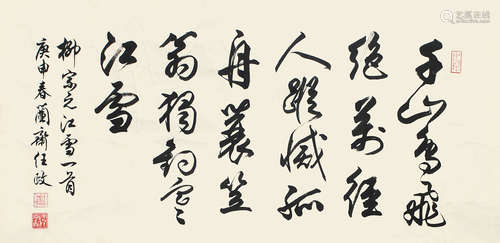 千山鸟飞
绝万径
人踪灭孤
舟蓑笠
翁独钓寒
江雪
柳宗元江雪一首
庚申春兰斋任政